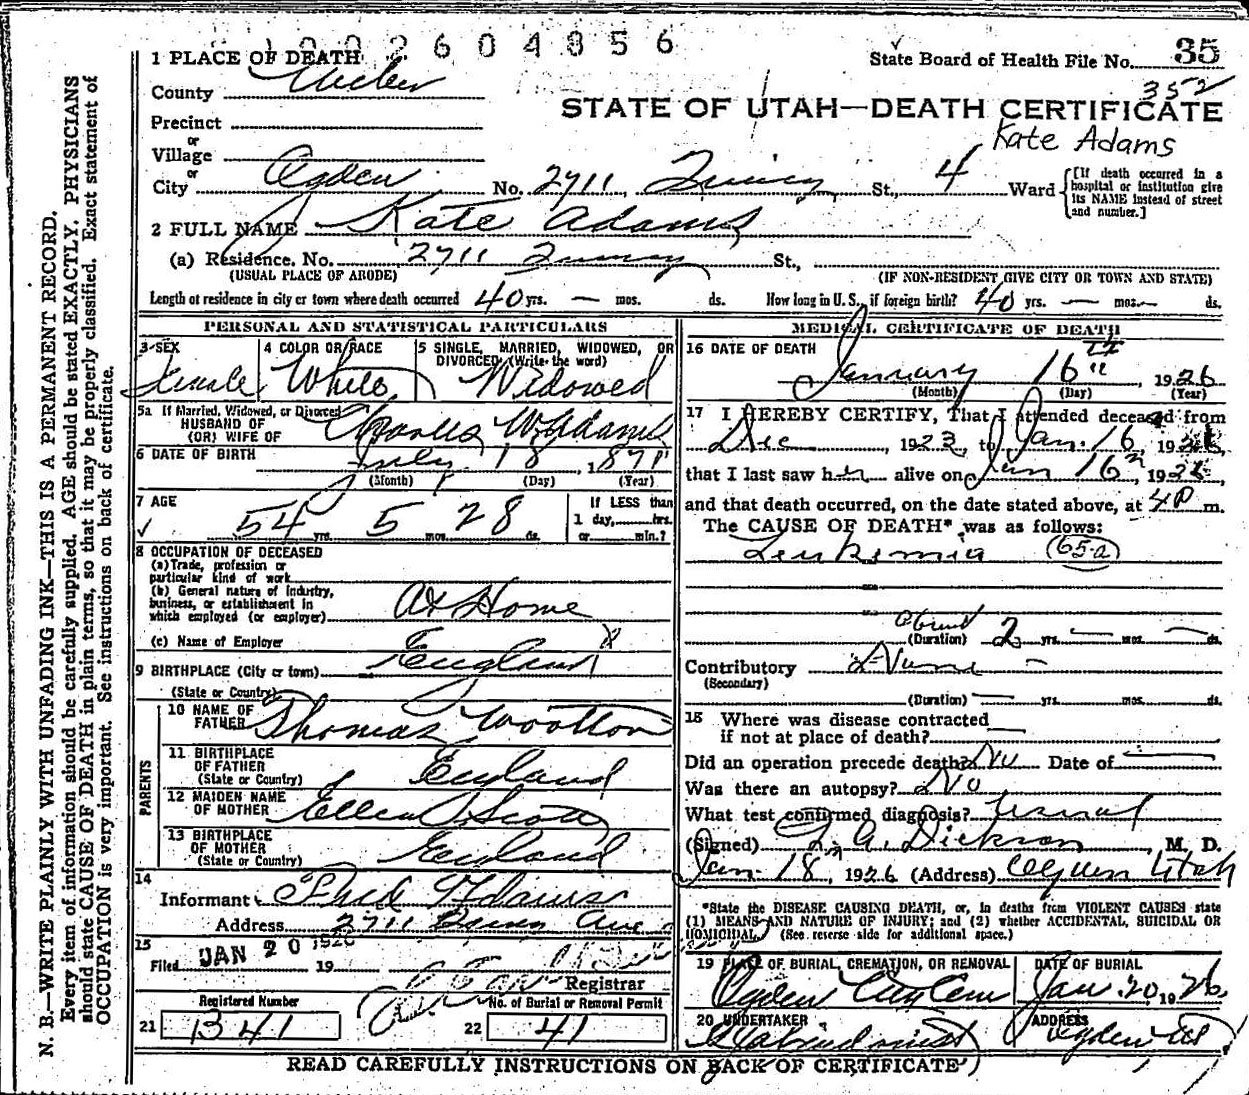 1002604856
1 PLACE OF DEATH
State Board of Health File No. 35
352
County Weber
STATE OF UTAH—DEATH CERTIFICATE
Precinct
Kate Adams
or
Village
or
City Ogden No. 2711 Quincy St., 4 Ward
[If death occurred in a hospital or institution give its NAME instead of street and number.]
2 FULL NAME Kate Adams
(a) Residence. No. 2711 Quincy St.,
(USUAL PLACE OF ABODE) (IF NON-RESIDENT GIVE CITY OR TOWN AND STATE)
Length of residence in city or town where death occurred 40 yrs. — mos. ds. How long in U. S., if foreign birth? 40 yrs. — mos. — ds.
PERSONAL AND STATISTICAL PARTICULARS
3 SEX
Female
4 COLOR OR RACE
White
5 SINGLE, MARRIED, WIDOWED, OR
DIVORCED (Write the word)
Widowed
5a If Married, Widowed, or Divorced
HUSBAND OF
(OR) WIFE OF Charles W. Adams
6 DATE OF BIRTH July 18, 1871
(Month) (Day) (Year)
7 AGE
54 yrs. 5 mos. 28 ds.
If LESS than
1 day, hrs.
or min.?
8 OCCUPATION OF DECEASED
(a) Trade, profession or
particular kind of work
(b) General nature of Industry,
business, or establishment in
which employed (or employer) At Home
(c) Name of Employer
9 BIRTHPLACE (City or town) England
(State or Country)
PARENTS
10 NAME OF
FATHER Thomas Wootton
11 BIRTHPLACE
OF FATHER England
(State or Country)
12 MAIDEN NAME
OF MOTHER Ellen Scott
13 BIRTHPLACE
OF MOTHER England
(State or Country)
14
Informant Adams
Address 2711 Ave
15
Filed JAN 20 1926 19
Registrar
Registered Number
21 B41
No. of Burial or Removal Permit
22 41
MEDICAL CERTIFICATE OF DEATH
16 DATE OF DEATH
January 16th, 1926
(Month) (Day) (Year)
17 I HEREBY CERTIFY, That I attended deceased from
Dec 1923, to Jan. 16 1926,
that I last saw her alive on Jan 16th, 1926,
and that death occurred, on the date stated above, at 4 P m.
The CAUSE OF DEATH* was as follows:
Leukemia 65-a
about 2 yrs. — mos. — ds.
(Duration)
Contributory None —
(Secondary)
(Duration) — yrs. mos. ds.
18 Where was disease contracted
if not at place of death? —
Did an operation precede death? No Date of —
Was there an autopsy? No
What test confirmed diagnosis? usual
(Signed) Dickson, M. D.
Jan. 18, 1926 (Address) Ogden Utah
*State the DISEASE CAUSING DEATH, or, in deaths from VIOLENT CAUSES state
(1) MEANS AND NATURE OF INJURY; and (2) whether ACCIDENTAL, SUICIDAL OR
HOMICIDAL. (See reverse side for additional space.)
19 PLACE OF BURIAL, CREMATION, OR REMOVAL
Ogden City Cem
DATE OF BURIAL
Jan. 20, 1926
20 UNDERTAKER
ADDRESS
Ogden Ut
READ CAREFULLY INSTRUCTIONS ON BACK OF CERTIFICATE
N. B.—WRITE PLAINLY WITH UNFADING INK—THIS IS A PERMANENT RECORD.
Every item of information should be carefully supplied. AGE should be stated EXACTLY. PHYSICIANS
should state CAUSE OF DEATH in plain terms, so that it may be properly classified. Exact statement of
OCCUPATION is very important. See instructions on back of certificate.